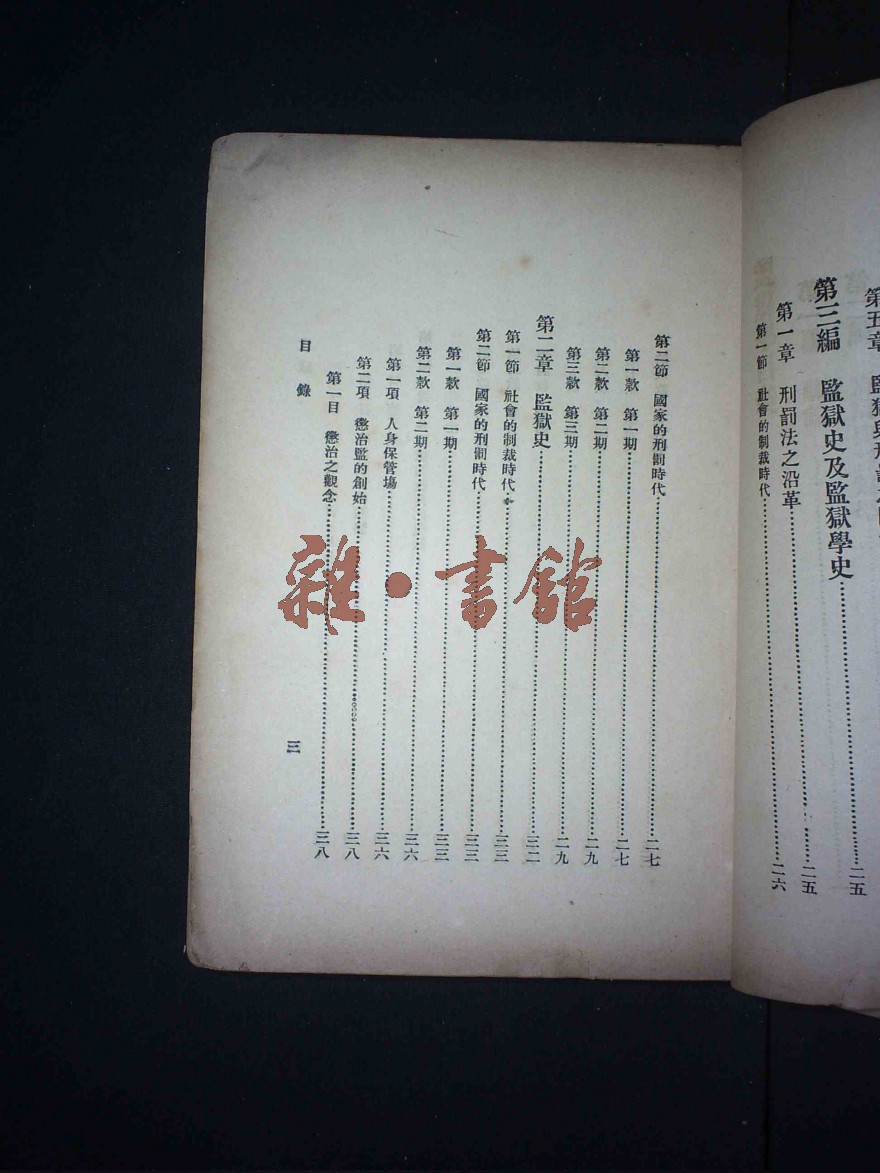 第三編　監獄史及監獄學史……二五
第一章　刑罰法之沿革……二五
第一節　社會的制裁時代……二六
第二節　國家的刑罰時代……二七
第一款　第一期……二七
第二款　第二期……二九
第三款　第三期……二九
第二章　監獄史……三二
第一節　社會的制裁時代……三三
第二節　國家的刑罰時代……三三
第一款　第一期……三三
第二款　第二期……三六
第一項　人身保管場……三六
第二項　懲治監的創始……三八
第一目　懲治之觀念……三八
目錄
三
雜·書館